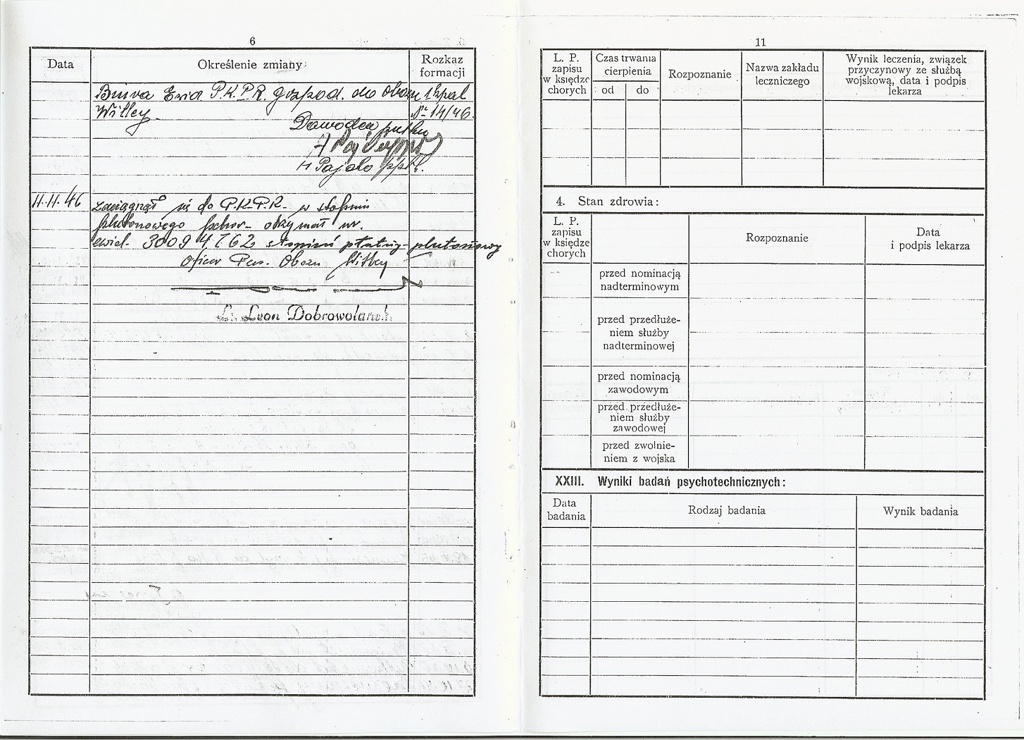 6
Data
Określenie zmiany
Rozkaz
formacji
P.K.P.R. gospod. do obozu
Witley
Nr 14/46.
Dowódca pułku
ppłk.
11.11.46
zaciągnął się do P.K.P.R. w stopniu
plutonowego pchor. otrzymał nr.
ewid. 3009 stopień płatny plutonowy
Oficer Pers. Obozu Witley
Leon Dobrowolanski
11
L. P.
zapisu
w księdze
chorych
Czas trwania
cierpienia
od
do
Rozpoznanie
Nazwa zakładu
leczniczego
Wynik leczenia, związek
przyczynowy ze służbą
wojskową, data i podpis
lekarza
4. Stan zdrowia:
L. P.
zapisu
w księdze
chorych
Rozpoznanie
Data
i podpis lekarza
przed nominacją
nadterminowym
przed przedłuże-
niem służby
nadterminowej
przed nominacją
zawodowym
przed przedłuże-
niem służby
zawodowej
przed zwolnie-
niem z wojska
XXIII. Wyniki badań psychotechnicznych:
Data
badania
Rodzaj badania
Wynik badania